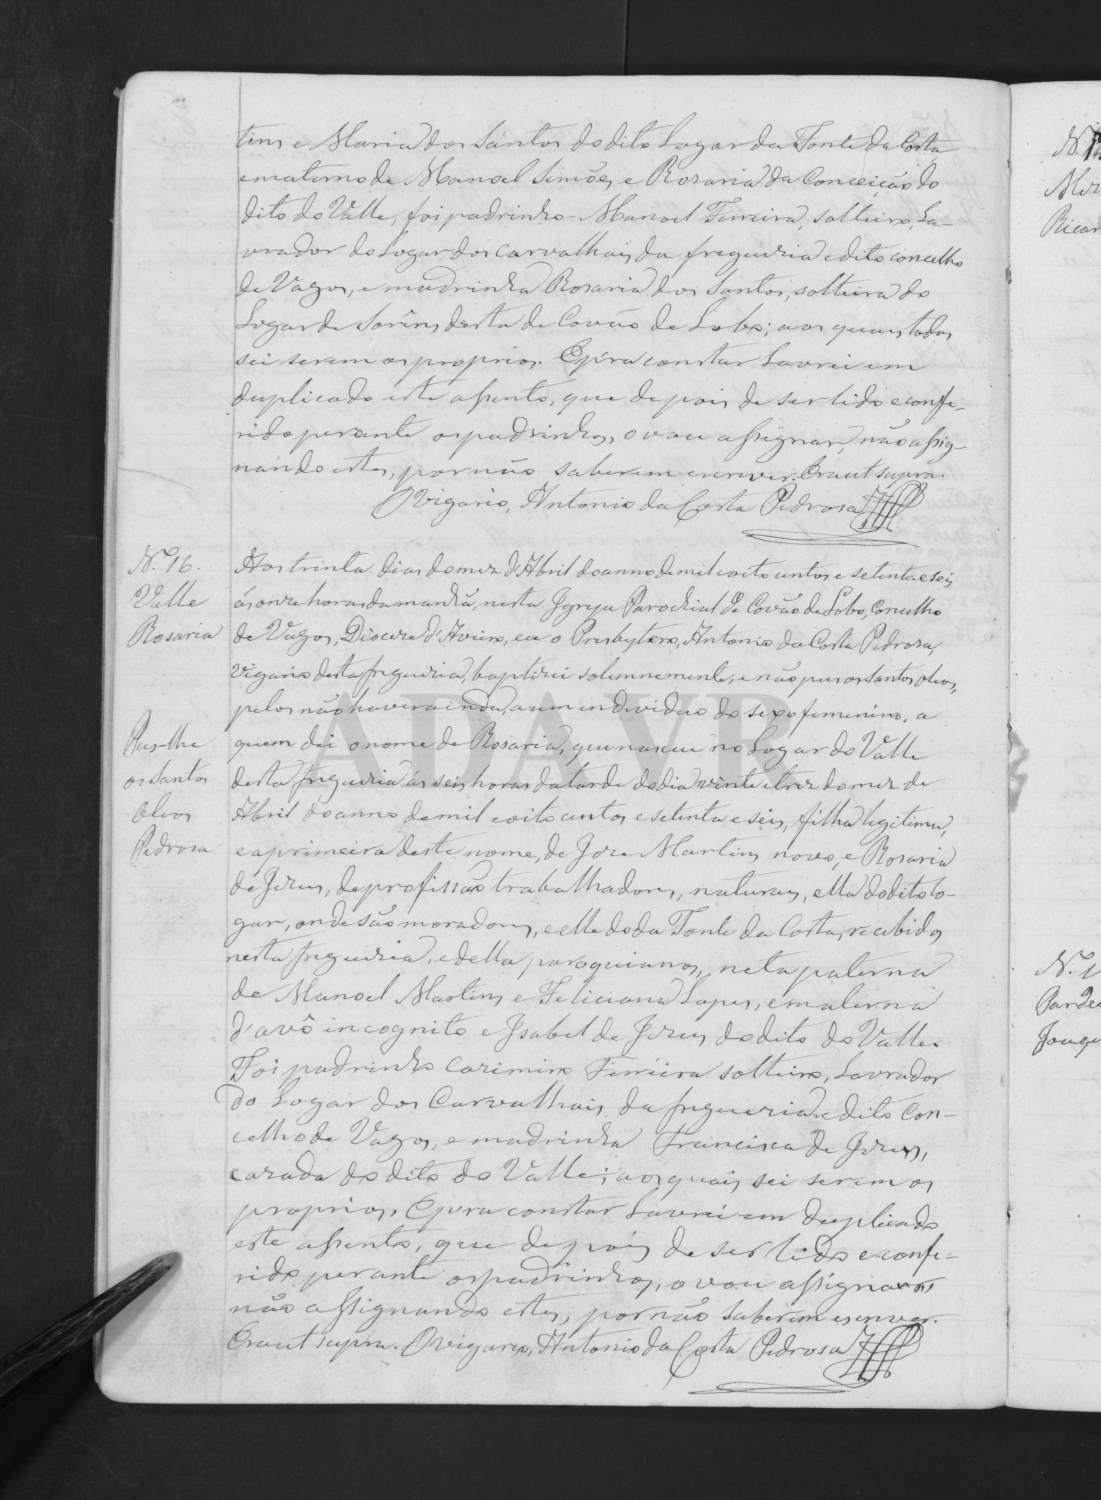 tins e Maria dos Santos do dito Logar da Fonte da Costa
e materno de Manoel Simões, e Rosaria da Conceição do
dito do Valle, foi padrinho - Manoel Ferreira, solteiro, La-
vrador do Logar dos Carvalhais da freguezia e dito concelho
de Vagos, e madrinha Rosaria dos Santos, solteira do
Logar de Sorins desta de Covão do Lobo; aos quaes todos
sei serem os proprios. E p.ª constar Lavrei em
duplicado este assento, que depois de ser lido e confe-
rido perante os padrinhos, o vou assignar, não assig-
nando estes, por não saberem escrever. Era ut supra.
O Vigario, Antonio da Costa Pedrosa
N.º 16.
Valle
Rosaria
Pus-lhe
os Santos
Oleos
Pedrosa
Aos trinta dias do mez d'Abril do anno de mil e oito centos e setenta e seis
ás onze horas da manhã, nesta Igreja Parochial de Covão do Lobo, Concelho
de Vagos, Diocese d'Aveiro, eu o Presbytero, Antonio da Costa Pedrosa,
Vigario desta freguezia, baptizei solemnemente, e não pus os Santos oleos,
pelos não haver ainda, a um individuo do sexo femenino, a
quem dei o nome de Rosaria, que nasceu no Logar do Valle
desta freguezia ás seis horas da tarde do dia vinte e tres do mez de
Abril do anno de mil e oito centos e setenta e seis, filha legitima,
e a primeira deste nome, de Jose Martins novo, e Rosaria
de Jesus, de profissão trabalhadores, naturaes, ella do dito lo-
gar, onde são moradores, e elle do da Fonte da Costa, recebidos
nesta freguezia, e della paroquianos, neta paterna
de Manoel Martins e Feliciana Lopes, e materna
d'avô incognito e Isabel de Jesus do dito do Valle.
Foi padrinho Casimiro Ferreira solteiro, Lavrador
do Logar dos Carvalhais da freguezia e dito Con-
celho de Vagos, e madrinha Francisca de Jesus,
casada do dito do Valle; aos quais sei serem os
proprios. E para constar Lavrei em duplicado
este assento, que depois de ser lido e confe-
rido perante os padrinhos, o vou assignar,
não assignando estes, por não saberem escrever.
Era ut supra. O Vigario, Antonio da Costa Pedrosa
ADAVR